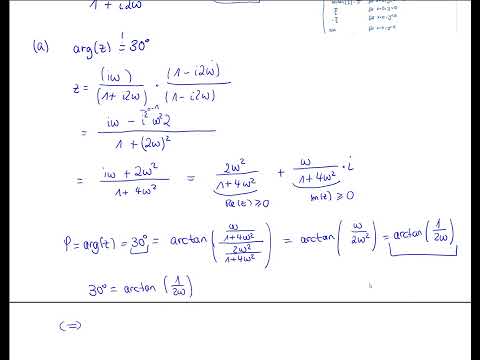 1 + i2ω
(a) arg(z) != 30°
z = (iω) / (1 + i2ω) · (1 - i2ω) / (1 - i2ω)
= (iω - i²ω²2) / (1 + (2ω)²)
= (iω + 2ω²) / (1 + 4ω²) = 2ω² / (1 + 4ω²) + ω / (1 + 4ω²) · i
Re(z) ≥ 0 Im(z) ≥ 0
φ = arg(z) = 30° = arctan((ω / (1 + 4ω²)) / (2ω² / (1 + 4ω²))) = arctan(ω / 2ω²) = arctan(1 / 2ω)
30° = arctan(1 / 2ω)
(=)